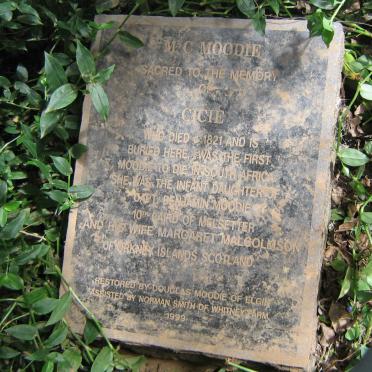 M.C. MOODIE
SACRED TO THE MEMORY
OF
CICIE
WHO DIED C 1821 AND IS
BURIED HERE. WAS THE FIRST
MOODIE TO DIE IN SOUTH AFRICA
SHE WAS THE INFANT DAUGHTER OF
BENJAMIN MOODIE
10TH LAIRD OF MELSETTER
AND HIS WIFE MARGARET MALCOLMSON
OF ORKNEY ISLANDS SCOTLAND
RESTORED BY DOUGLAS MOODIE OF ELGIN
ASSISTED BY NORMAN SMITH OF WHITNEY FARM
1999